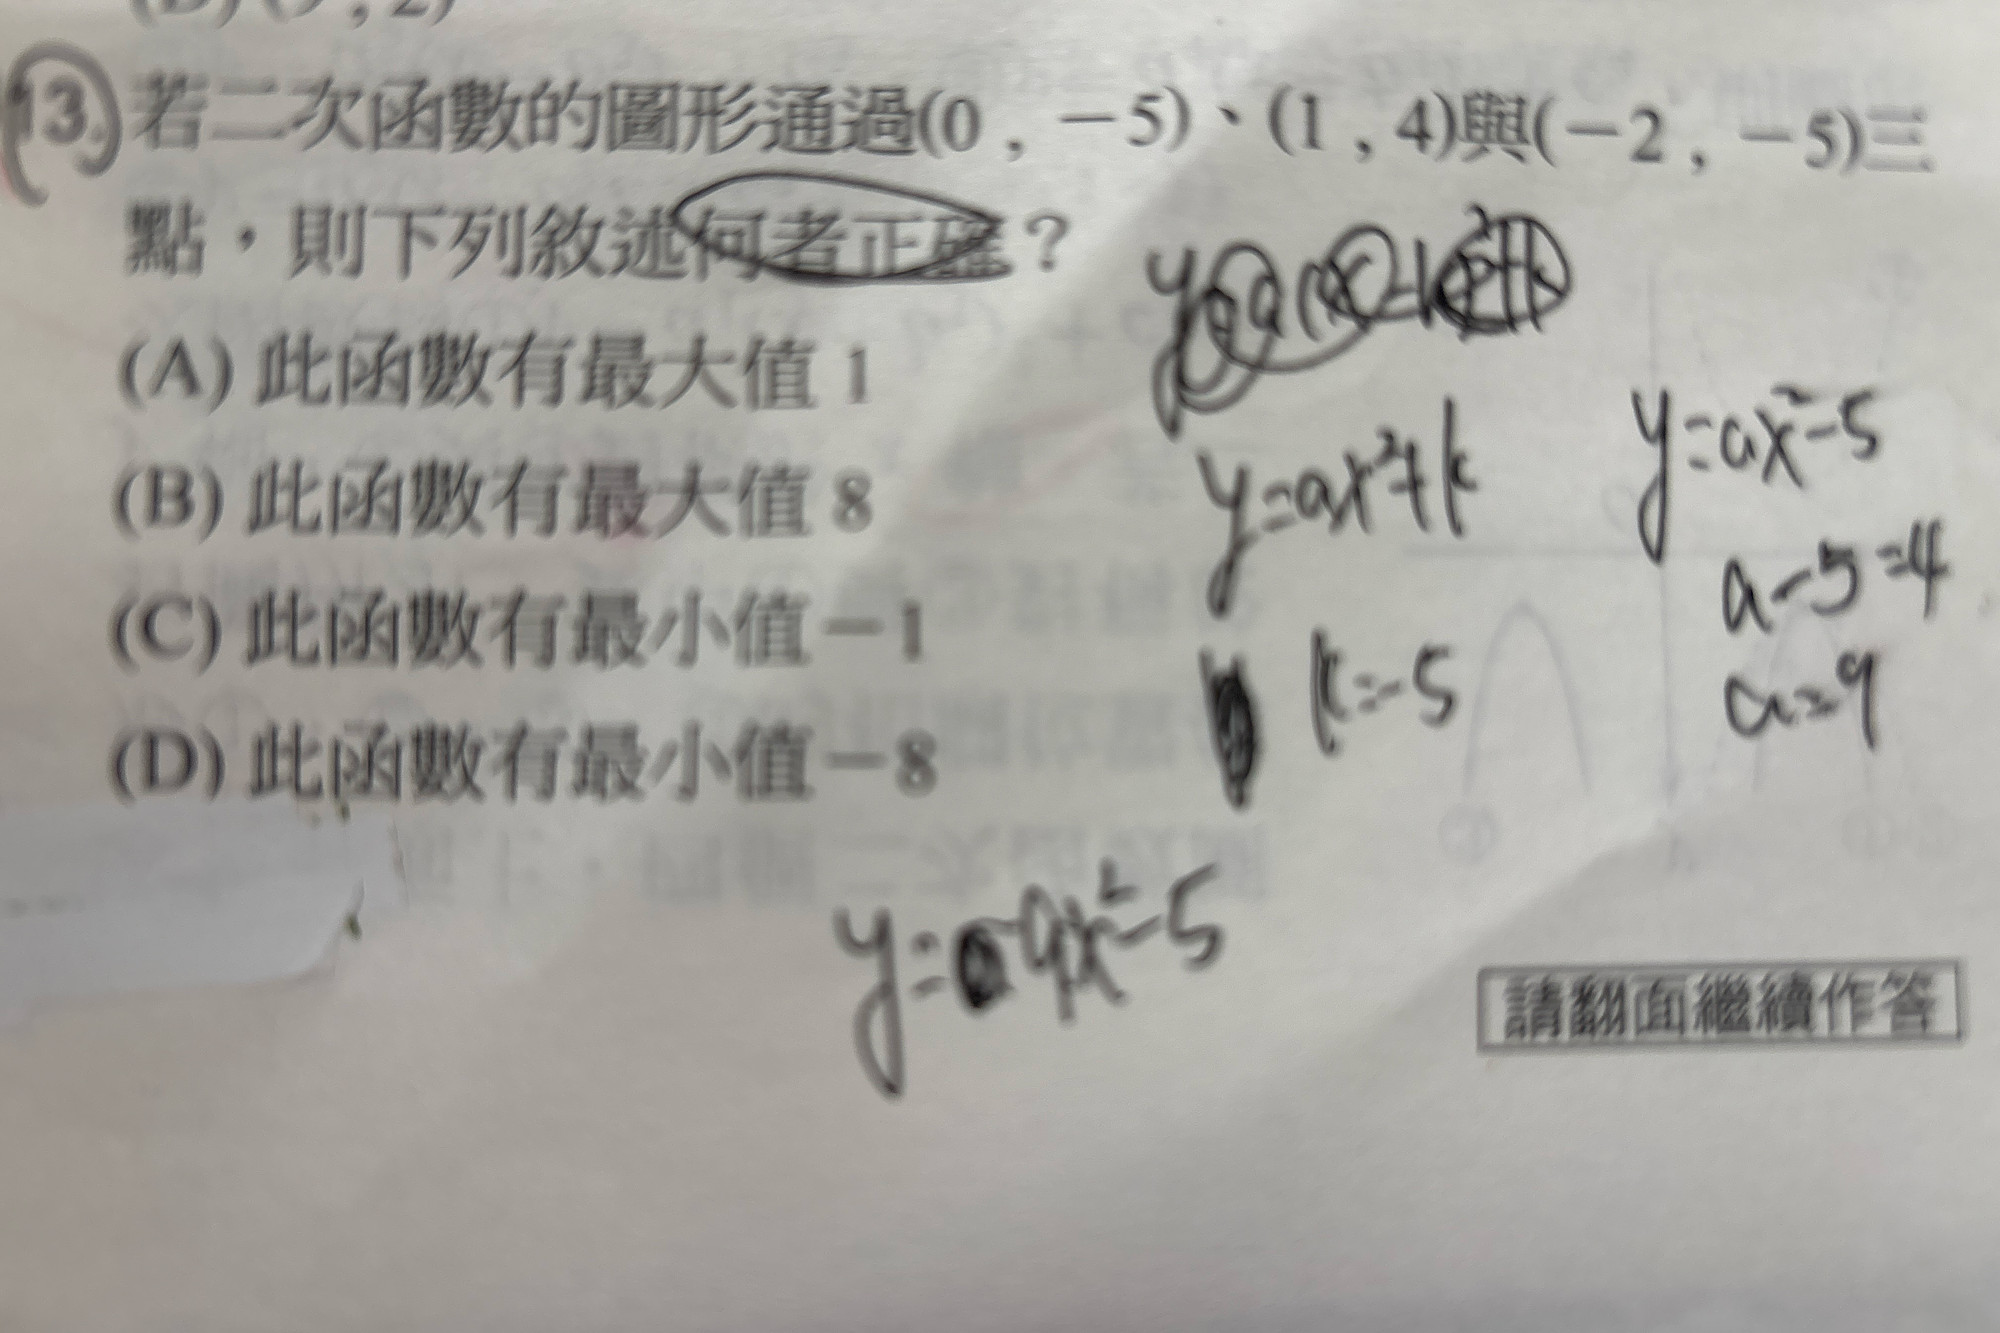 13. 若二次函數的圖形通過(0 , －5)、(1 , 4)與(－2 , －5)三
點，則下列敘述何者正確？
(A) 此函數有最大值 1
(B) 此函數有最大值 8
(C) 此函數有最小值－1
(D) 此函數有最小值－8
y=ax²+k
k=-5
y=ax²-5
a-5=4
a=9
y=9x²-5
請翻面繼續作答